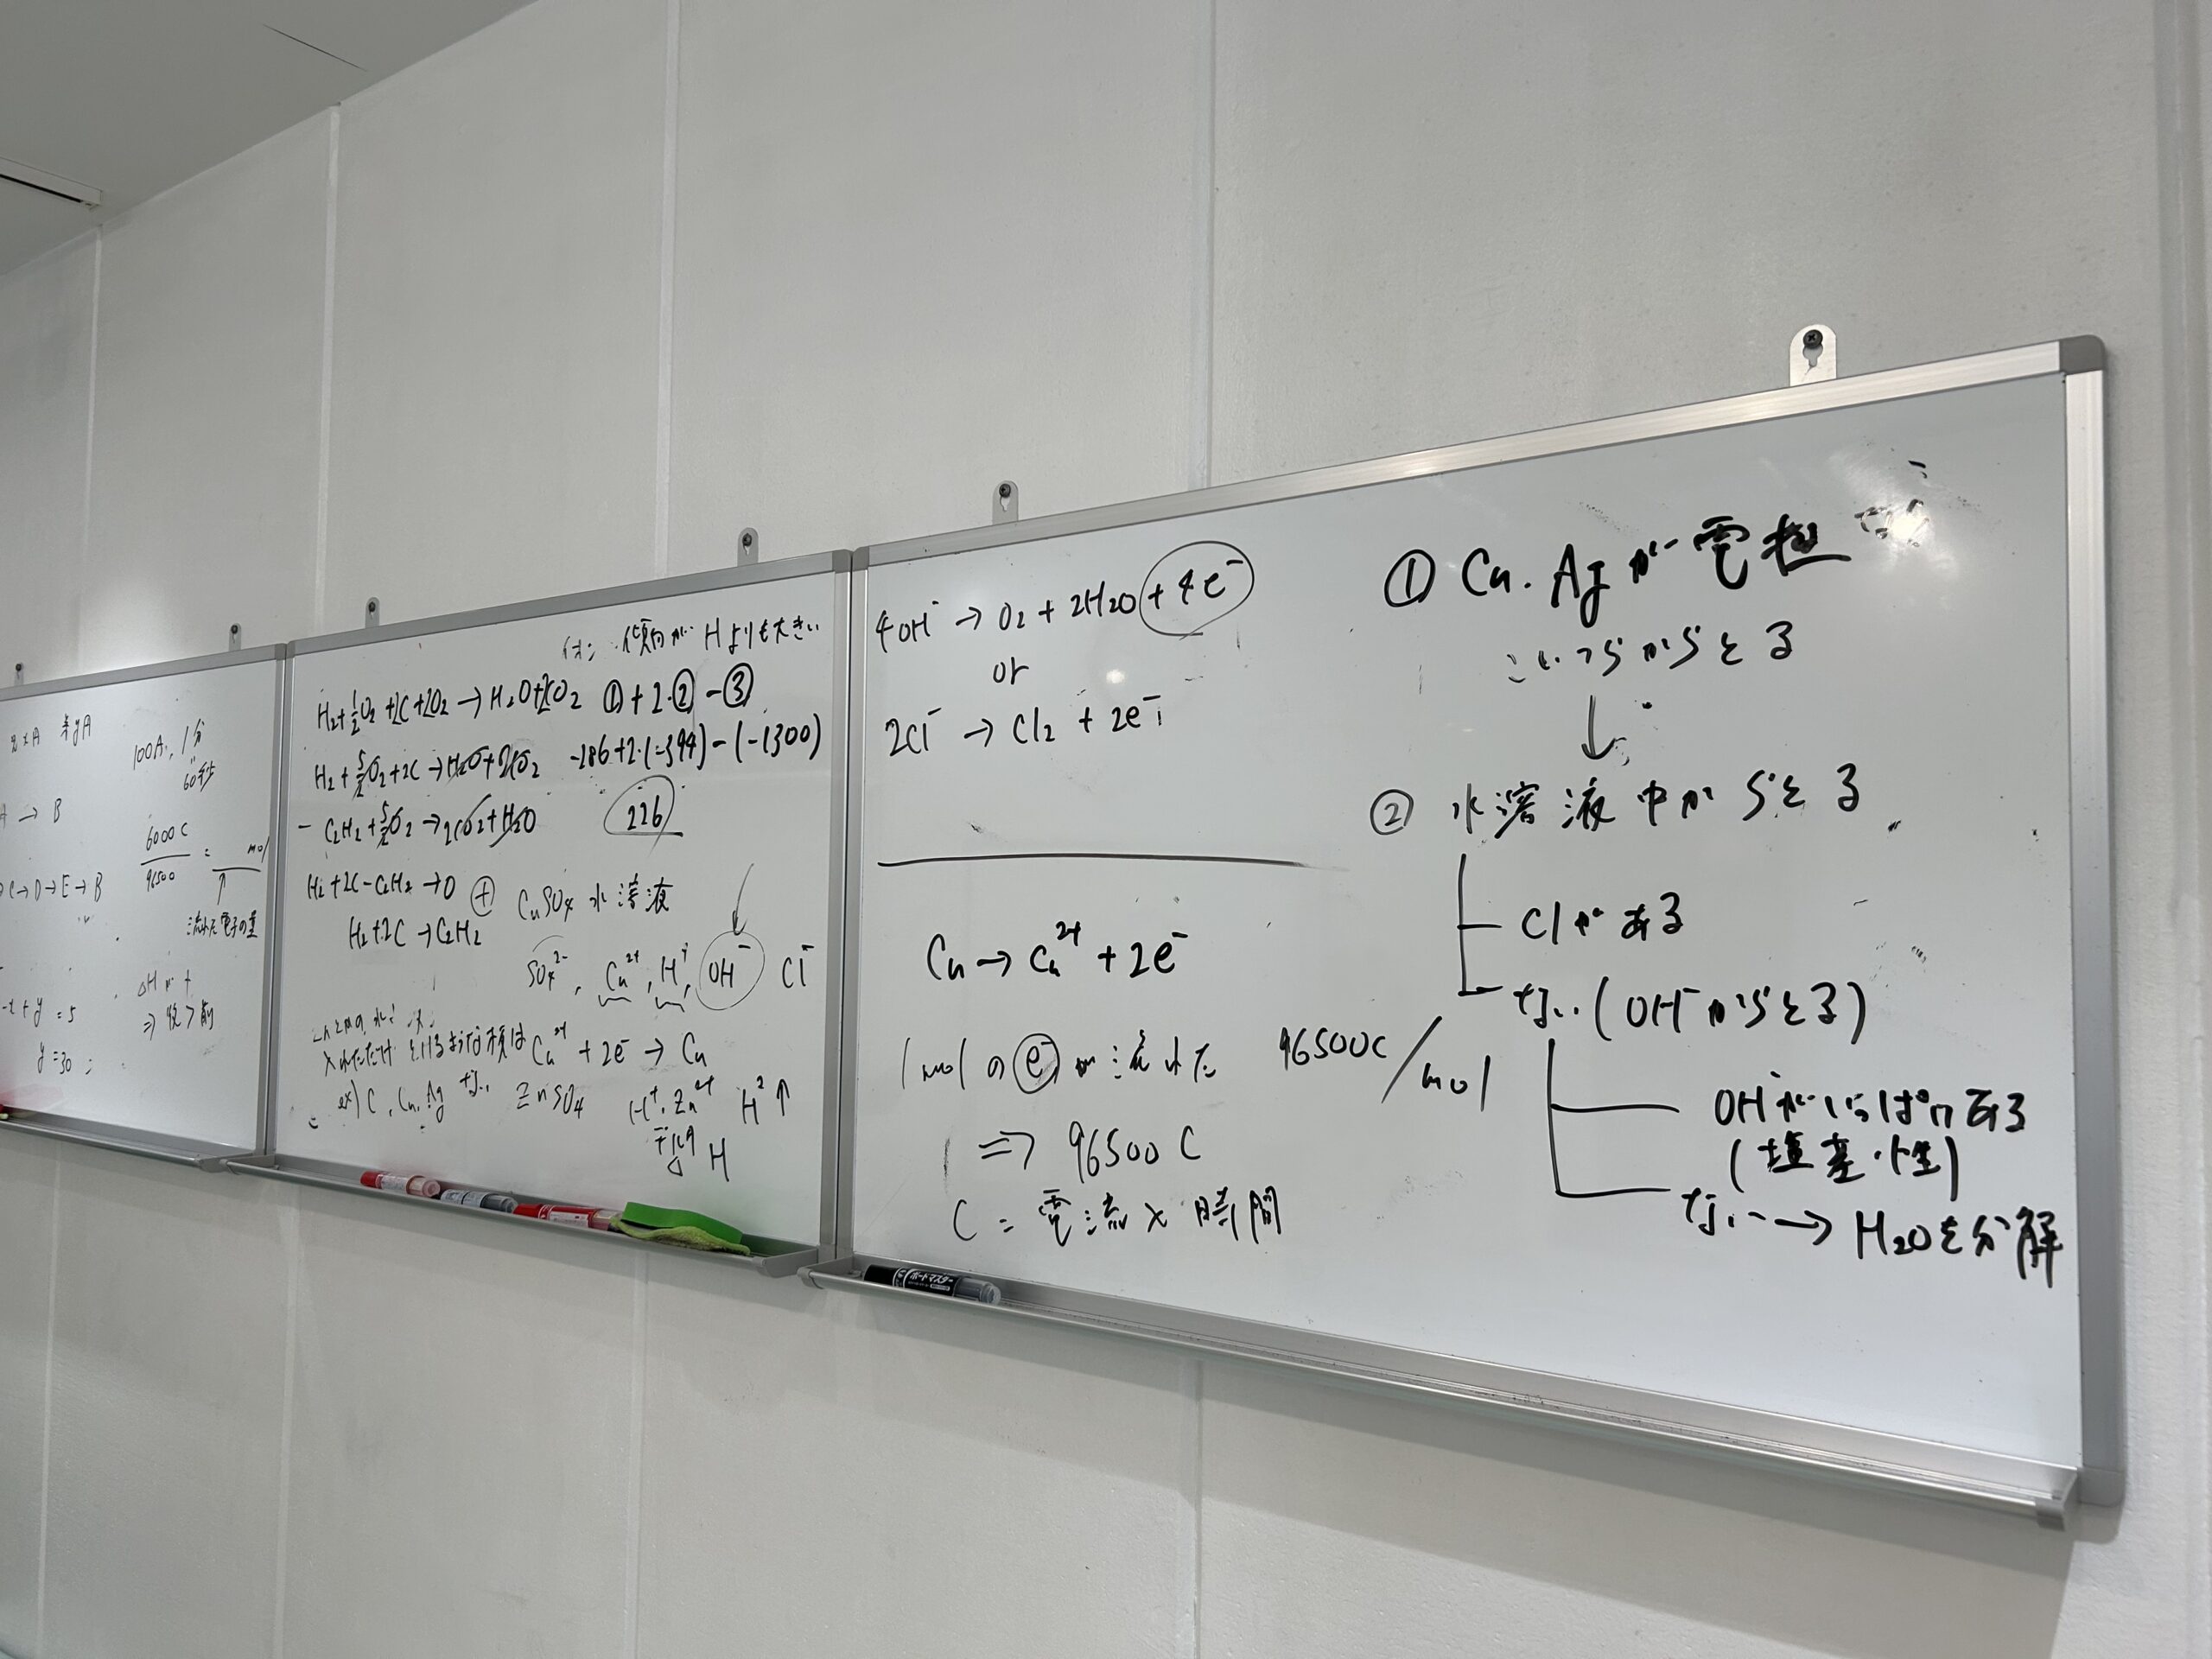 100A, 1分
60秒
→ B
6000C
96500
= mol
↑
C→D→E→B
流れた電子の量
-x + y = 5
y = 30
ΔHが+
⇒ 後>前
イオン化傾向がHよりも大きい
H₂+½O₂+2C+2O₂→H₂O+2CO₂ ①+2・②-③
H₂+5/2O₂+2C→H₂O+2CO₂ -286+2・(-394)-(-1300)
- C₂H₂+5/2O₂→2CO₂+H₂O 226
H₂+2C-C₂H₂→0
H₂+2C→C₂H₂
⊕ CuSO₄水溶液
SO₄²⁻, Cu²⁺, H⁺, OH⁻ Cl⁻
Cu²⁺ + 2e⁻ → Cu
ex) C, Cu, Ag ZnSO₄ H⁺, Zn²⁺ H²↑
H
4OH⁻ → O₂ + 2H₂O + 4e⁻
or
2Cl⁻ → Cl₂ + 2e⁻
Cu → Cu²⁺ + 2e⁻
1molのe⁻が流れた 96500C/mol
⇒ 96500C
C = 電流×時間
① Cu. Agが電極
こいつらからとる
↓
② 水溶液中からとる
Clがある
ない(OH⁻からとる)
OH⁻がいっぱいある
(塩基性)
ない → H₂Oを分解
ボードマスター